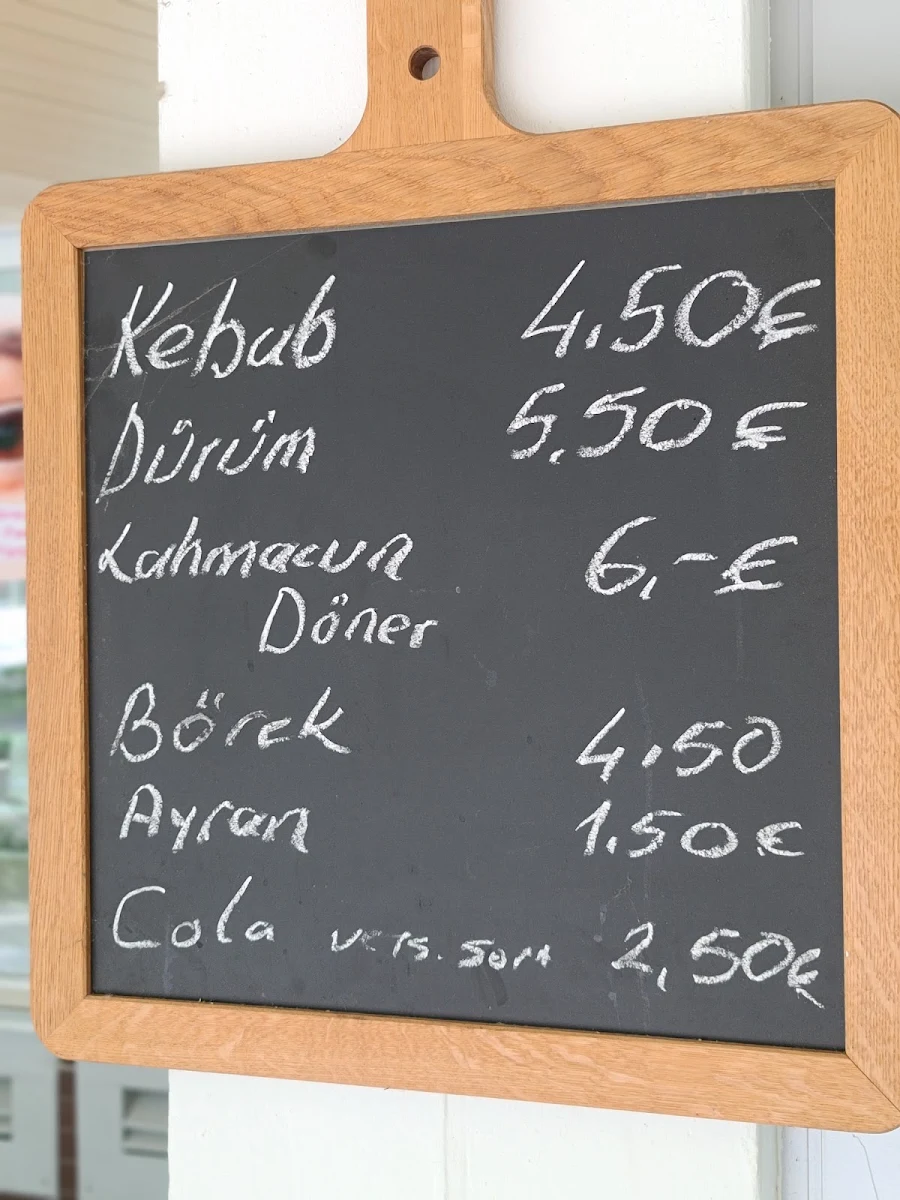 Kebab 4.50€
Dürüm 5.50€
Lahmacun 6,-€
Döner
Börek 4.50
Ayran 1.50€
Cola vers. Sort 2,50€